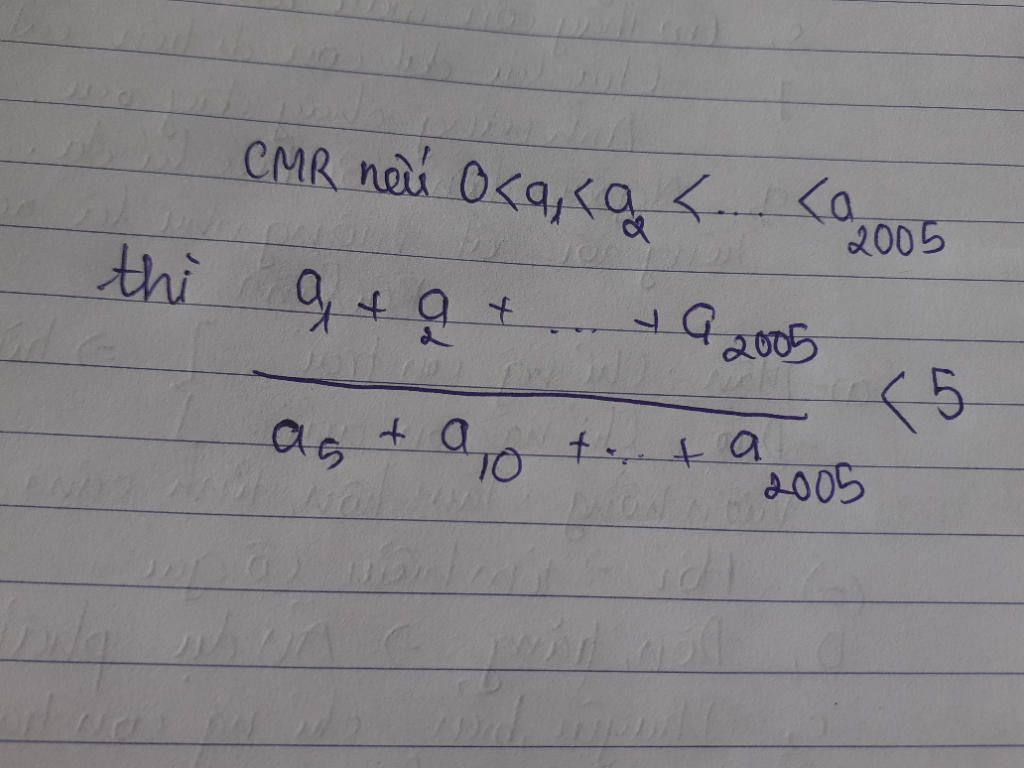 CMR nếu 0 < a₁ < a₂ < .... < a₂₀₀₅
thì a₁ + a₂ + ... + a₂₀₀₅
< 5
a₅ + a₁₀ + ... + a₂₀₀₅